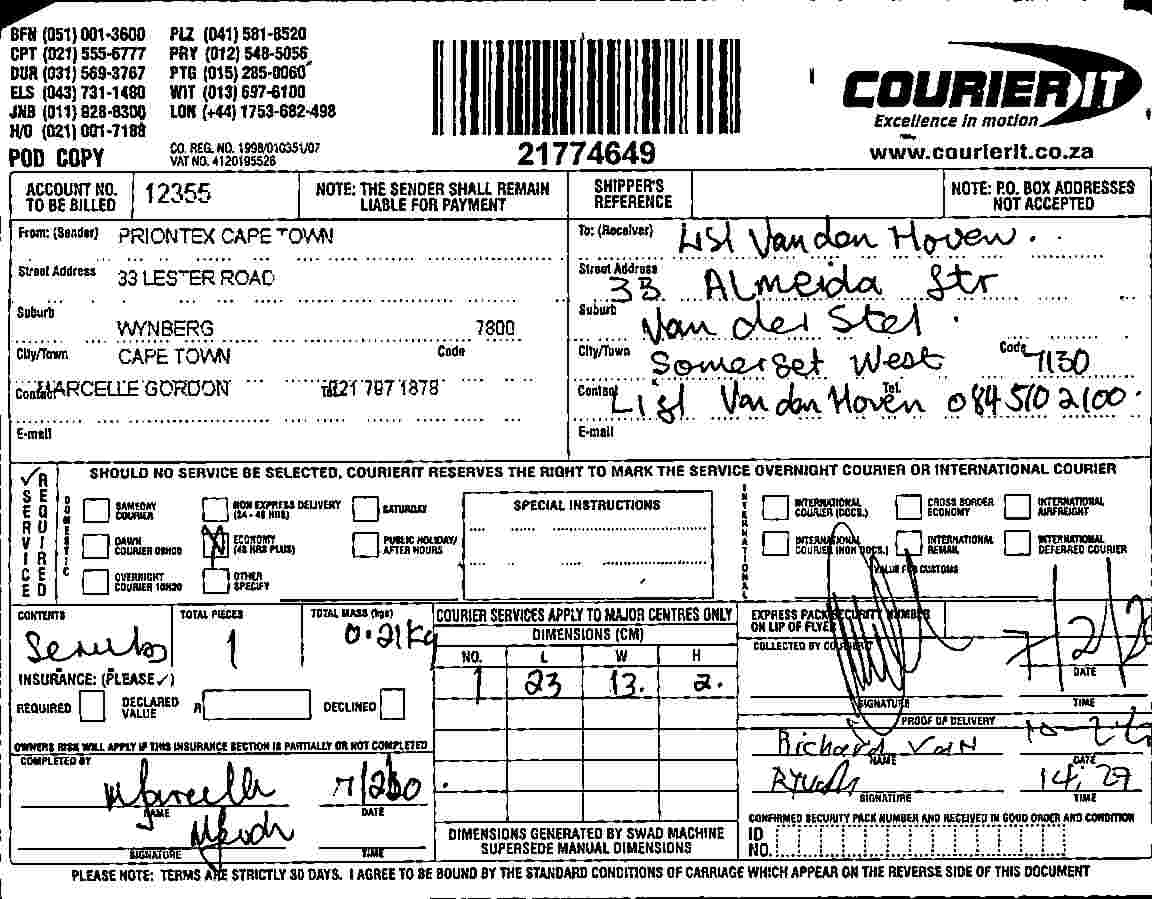 BFN (051) 001-3600 PLZ (041) 581-8520
CPT (021) 555-6777 PRY (012) 548-5056
DUR (031) 569-3767 PTG (015) 285-0060
ELS (043) 731-1480 WIT (013) 697-6100
JNB (011) 928-8300 LON (+44) 1753-682-498
H/O (021) 001-7188
POD COPY
CO. REG. NO. 1998/010351/07
VAT NO. 4120195526
21774649
COURIER IT
Excellence in motion
www.courierit.co.za
ACCOUNT NO. TO BE BILLED 12355
NOTE: THE SENDER SHALL REMAIN LIABLE FOR PAYMENT
SHIPPER'S REFERENCE
NOTE: P.O. BOX ADDRESSES NOT ACCEPTED
From: (Sender) PRIONTEX CAPE TOWN
Street Address 33 LESTER ROAD
Suburb WYNBERG 7800
City/Town CAPE TOWN Code
Contact MARCELLE GORDON Tel. 021 797 1878
E-mail
To: (Receiver) Van den Hoven
Street Address 33 Almeida Str
Suburb Van der Stel
City/Town Somerset West Code 7130
Contact Van den Hoven Tel. 0845102100
E-mail
SERVICE REQUIRED
SHOULD NO SERVICE BE SELECTED, COURIERIT RESERVES THE RIGHT TO MARK THE SERVICE OVERNIGHT COURIER OR INTERNATIONAL COURIER
DOMESTIC
SAMEDAY COURIER
NON EXPRESS DELIVERY (24 - 48 HRS)
SATURDAY
DAWN COURIER 08H00
ECONOMY (48 HRS PLUS)
PUBLIC HOLIDAY/ AFTER HOURS
OVERNIGHT COURIER 10H30
OTHER SPECIFY
SPECIAL INSTRUCTIONS
INTERNATIONAL
INTERNATIONAL COURIER (DOCS.)
CROSS BORDER ECONOMY
INTERNATIONAL AIRFREIGHT
INTERNATIONAL COURIER (NON DOCS.)
INTERNATIONAL REMAIL
INTERNATIONAL DEFERRED COURIER
VALUE FOR CUSTOMS
CONTENTS
TOTAL PIECES 1
TOTAL MASS (kgs) 0.21Kg
INSURANCE: (PLEASE ✓)
REQUIRED
DECLARED VALUE R
DECLINED
OWNERS RISK WILL APPLY IF THIS INSURANCE SECTION IS PARTIALLY OR NOT COMPLETED
COMPLETED BY
Marcelle
NAME DATE
SIGNATURE TIME
COURIER SERVICES APPLY TO MAJOR CENTRES ONLY
DIMENSIONS (CM)
NO. L W H
1 23 13. 2.
DIMENSIONS GENERATED BY SWAD MACHINE SUPERSEDE MANUAL DIMENSIONS
EXPRESS PACK SECURITY NUMBER ON LIP OF FLYER
COLLECTED BY COURIERIT
7/2/20
DATE
SIGNATURE TIME
PROOF OF DELIVERY
Richard Van
NAME DATE
14:29
SIGNATURE TIME
CONFIRMED SECURITY PACK NUMBER AND RECEIVED IN GOOD ORDER AND CONDITION
ID NO.
PLEASE NOTE: TERMS ARE STRICTLY 30 DAYS. I AGREE TO BE BOUND BY THE STANDARD CONDITIONS OF CARRIAGE WHICH APPEAR ON THE REVERSE SIDE OF THIS DOCUMENT